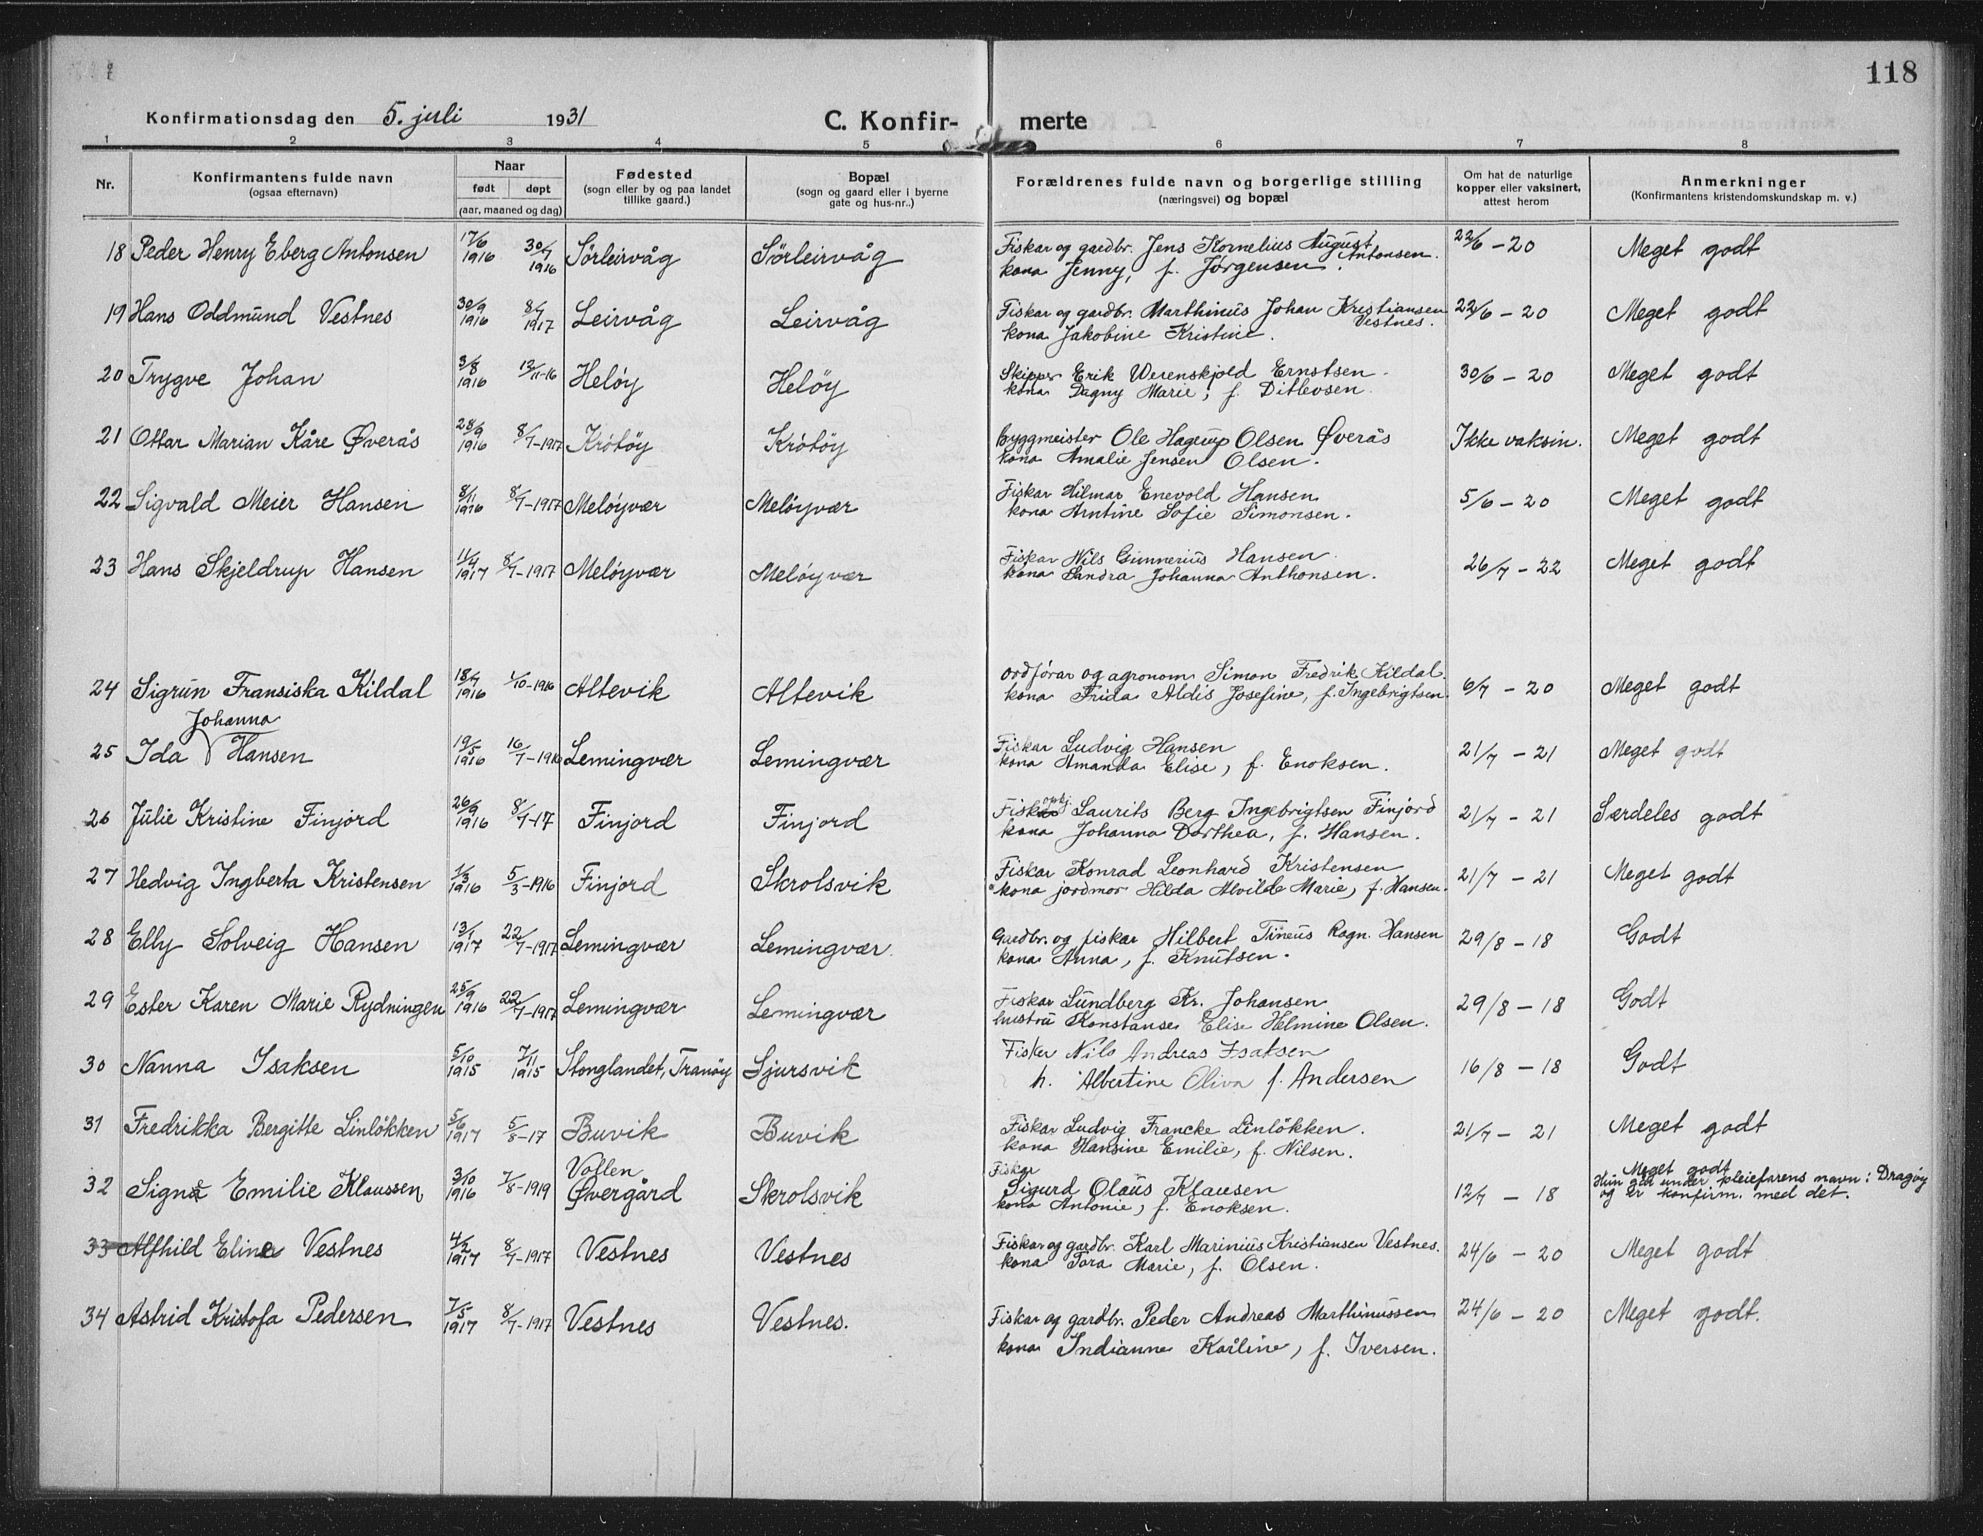 118
Konfirmationsdag den 5. juli 1931 C. Konfir- merte
1 2 3 4 5 6 7 8
Nr. Konfirmantens fulde navn (ogsaa efternavn) Naar født døpt (aar, maaned og dag) Fødested (sogn eller by og paa landet tillike gaard.) Bopæl (sogn og gaard eller i byerne gate og hus-nr..) Forældrenes fulde navn og borgerlige stilling (næringsvei) og bopæl Om hat de naturlige kopper eller vaksinert, attest herom Anmerkninger (Konfirmantens kristendomskundskap m. v.)
18 Peder Henry Eberg Antonsen 17/6 1916 30/7 1916 Sørleirvåg Sørleirvåg Fiskar og gardbr. Jens Kornelius August Antonsen. 22/6 - 20 Meget godt
kona Jenny, f. Jørgensen.
19 Hans Oddmund Vestnes 30/9 1916 8/7 1917 Leirvåg Leirvåg Fiskar og gardbr. Marthinus Johan Kristiansen Vestnes. 22/6 - 20 Meget godt
kona Jakobine Kristine.
20 Trygve Johan 3/8 1916 12/11-16 Heløy Heløy Skipper Erik Werenskjold Ernstsen 30/6 - 20 Meget godt
kona Dagny Marie, f. Ditlevsen.
21 Ottar Marian Kåre Øverås 28/9 1916 8/7-1917 Krøtøy Krøtøy byggmeister Ole Hagrup Olsen Øverås Ikke vaksin. Meget godt
kona Amalie Jensen Olsen.
22 Sigvald Meier Hansen 8/11 1916 8/7-1917 Meløyvær Meløyvær Fiskar Hilmar Enevold Hansen 5/6 - 20 Meget godt
kona Arntine Sofie Simonsen.
23 Hans Skjeldrup Hansen 11/4 1917 8/7-1917 Meløyvær Meløyvær Fiskar Nils Gunnerius Hansen 26/7 - 22 Meget godt
kona Sandra Johanna Anthonsen.
24 Sigrun Fransiska Kildal 18/7 1916 1/10-1916 Altevik Altevik ordførar og agronom Simon Fredrik Kildal. 6/7 - 20 Meget godt
kona Frida Aldis Josefine, f. Ingebrigtsen.
25 Ida Johanna Hansen 19/5 1916 16/7-1916 Lemingvær Lemingvær Fiskar Ludvig Hansen 21/7 - 21 Meget godt
kona Amanda Elise, f. Enoksen.
26 Julie Kristine Finjord 26/9 1916 8/7-17 Finjord Finjord Fisk Laurits Berg Ingebrigtsen Finjord 21/7 - 21 Særdeles godt
kona Johanna Dorthea, f. Hansen.
27 Hedvig Ingberta Kristensen 1/3 1916 5/3-1916 Finjord Skrolsvik Fiskar Konrad Leonhard Kristensen 21/7 - 21 Meget godt
kona jordmor Hilda Alvilde Marie, f. Hansen.
28 Elly Solveig Hansen 13/1 1917 22/7-1917 Lemingvær Lemingvær. Gardbr. og fiskar Hilbert Tineus Ragn. Hansen 29/8 - 18 Godt
kona Anna, f. Knutsen.
29 Ester Karen Marie Rydningen 25/9 1916 22/7-1917 Lemingvær Lemingvær Fiskar Lundberg Kr. Johansen 29/8 - 18 Godt
hustru Konstanse Elise Helmine Olsen.
30 Nanna Isaksen 5/10 1915 7/11 1915 Stonglandet, Tranøy Sjursvik Fisker Nils Andreas Isaksen 16/8 - 18 Godt
h. Albertine Oliva f. Andersen
31 Fredrikka Bergitte Linløkken 5/6 1917 5/8-17 Buvik Buvik Fiskar Ludvig Francke Linløkken. 21/7 - 21 Meget godt
kona Hansine Emilie, f. Nilsen.
32 Signe Emilie Klaussen 3/10 1916 7/8-1919 Vollen Øvergård Skrolsvik Fiskar Sigurd Olaus Klausen 12/7 - 18 Meget godt
kona Antonie, f. Enoksen. Hun går under pleiefarens navn: Dragøy og er konfirm. med det.
33 Alfhild Eline Vestnes 4/2 1917 8/7-1917 Vestnes Vestnes Fiskar og gardbr. Karl Marinius Kristiansen Vestnes. 24/6 - 20 Meget godt
kona Tora Marie, f. Olsen.
34 Astrid Kristofa Pedersen 7/5 1917 8/7-1917 Vestnes Vestnes. Fiskar og gardbr. Peder Andreas Marthinussen 24/6 - 20 Meget godt.
kona Indianne Karline, f. Iversen.